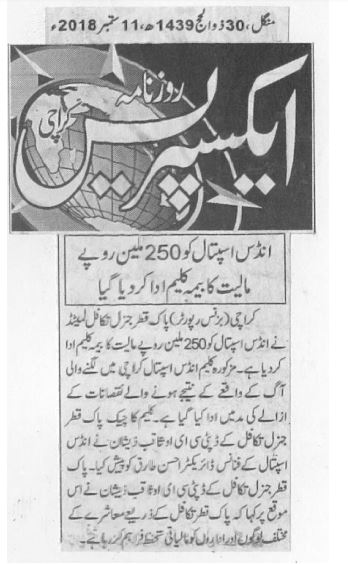 منگل، 30 ذوالحج 1439ھ، 11 ستمبر 2018ء
روزنامہ
ایکسپریس
کراچی
انڈس اسپتال کو 250 ملین روپے
مالیت کا بیمہ کلیم ادا کر دیا گیا
کراچی (بزنس رپورٹر) پاک قطر جنرل تکافل لمیٹڈ
نے انڈس اسپتال کو 250 ملین روپے مالیت کا بیمہ کلیم ادا
کر دیا ہے۔ مذکورہ کلیم انڈس اسپتال کراچی میں لگنے والی
آگ کے واقعے کے نتیجے ہونے والے نقصانات کے
ازالے کی مد میں ادا کیا گیا ہے۔ کلیم کا چیک پاک قطر
جنرل تکافل کے ڈپٹی سی ای او ثاقب ذیشان نے انڈس
اسپتال کے فنانس ڈائریکٹر احسن طارق کو پیش کیا۔ پاک
قطر جنرل تکافل کے ڈپٹی سی ای او ثاقب ذیشان نے اس
موقع پر کہا کہ پاک قطر تکافل کے ذریعے معاشرے کے
مختلف لوگوں اور اداروں کو مالیاتی تحفظ فراہم کر رہا ہے۔